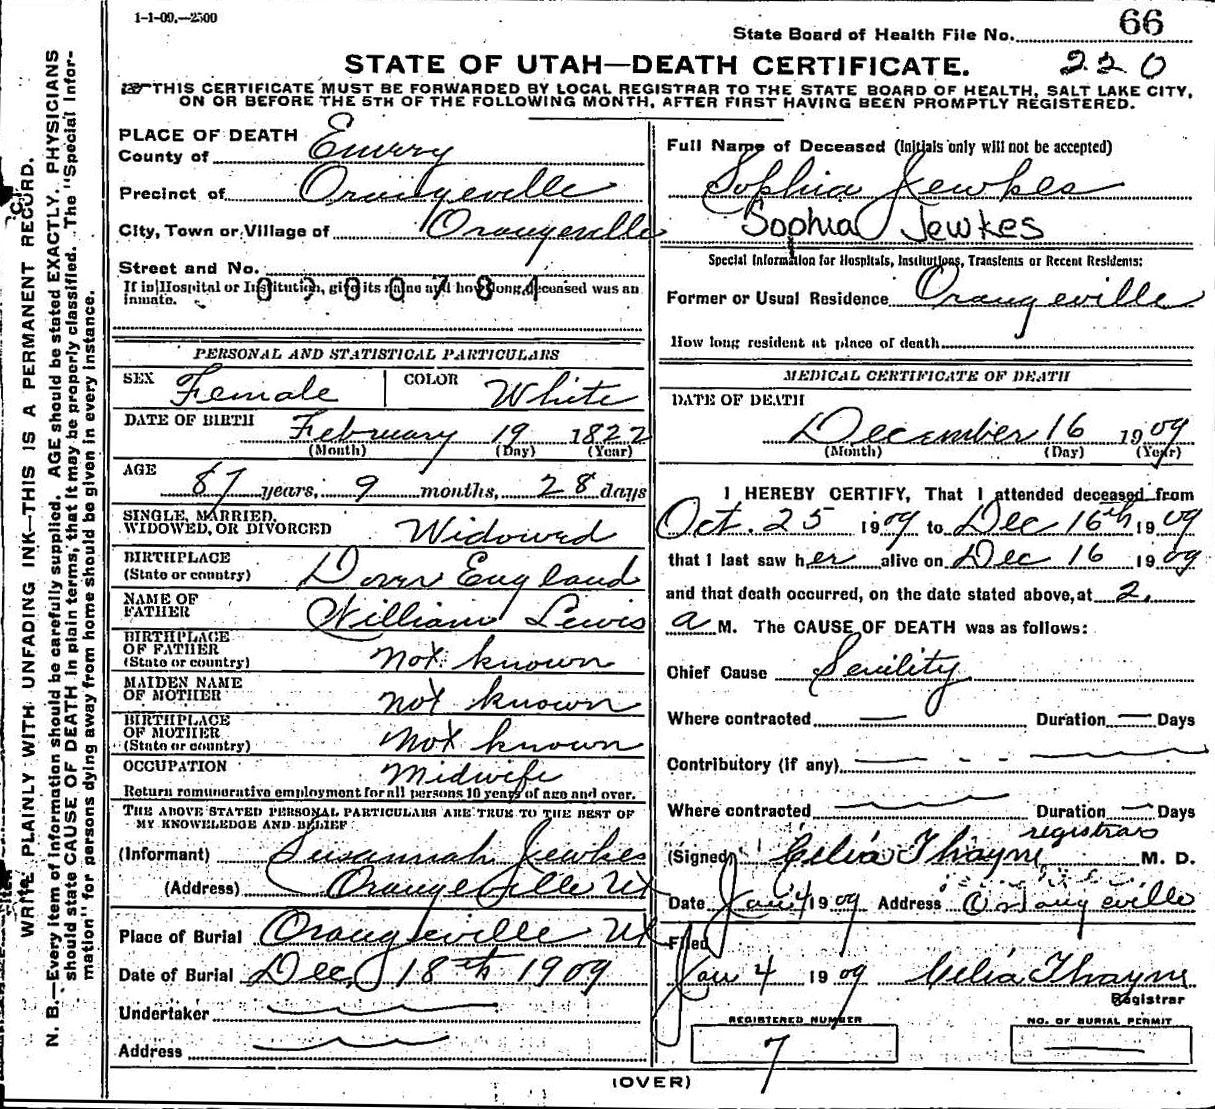 1-1-09.—2500
State Board of Health File No. 66
STATE OF UTAH—DEATH CERTIFICATE. 220
THIS CERTIFICATE MUST BE FORWARDED BY LOCAL REGISTRAR TO THE STATE BOARD OF HEALTH, SALT LAKE CITY,
ON OR BEFORE THE 5TH OF THE FOLLOWING MONTH, AFTER FIRST HAVING BEEN PROMPTLY REGISTERED.
WRITE PLAINLY WITH UNFADING INK—THIS IS A PERMANENT RECORD.
N. B.—Every item of information should be carefully supplied. AGE should be stated EXACTLY. PHYSICIANS
should state CAUSE OF DEATH in plain terms, that it may be properly classified. The "Special Infor-
mation" for persons dying away from home should be given in every instance.
PLACE OF DEATH
County of Emery
Precinct of Orangeville
City, Town or Village of Orangeville
Street and No.
If in Hospital or Institution, give its name and how long deceased was an
inmate.
PERSONAL AND STATISTICAL PARTICULARS
SEX Female COLOR White
DATE OF BIRTH February 19 1822
(Month) (Day) (Year)
AGE
87 years, 9 months, 28 days
SINGLE, MARRIED,
WIDOWED, OR DIVORCED Widowed
BIRTHPLACE
(State or country) Dover England
NAME OF
FATHER William Lewis
BIRTHPLACE
OF FATHER
(State or country) not known
MAIDEN NAME
OF MOTHER not known
BIRTHPLACE
OF MOTHER
(State or country) Not known
OCCUPATION Midwife
Return remunerative employment for all persons 10 years of age and over.
THE ABOVE STATED PERSONAL PARTICULARS ARE TRUE TO THE BEST OF
MY KNOWLEDGE AND BELIEF
(Informant) Susannah Jewkes
(Address) Orangeville Ut
Place of Burial Orangeville Ut
Date of Burial Dec 18th 1909
Undertaker
Address
Full Name of Deceased (Initials only will not be accepted)
Sophia Jewkes
Sophia Jewkes
Special Information for Hospitals, Institutions, Transients or Recent Residents:
Former or Usual Residence Orangeville
How long resident at place of death
MEDICAL CERTIFICATE OF DEATH
DATE OF DEATH
December 16 1909
(Month) (Day) (Year)
I HEREBY CERTIFY, That I attended deceased from
Oct. 25 1909 to Dec 16th 1909
that I last saw her alive on Dec 16 1909
and that death occurred, on the date stated above, at 2.
a M. The CAUSE OF DEATH was as follows:
Chief Cause Senility
Where contracted — Duration — Days
Contributory (if any)
Where contracted Duration — Days
registrar
(Signed) Celia Thayne M. D.
Date Jan 4 1909 Address Orangeville
Filed
Jan 4 1909 Celia Thayne
Registrar
REGISTERED NUMBER
7
NO. OF BURIAL PERMIT
(OVER)